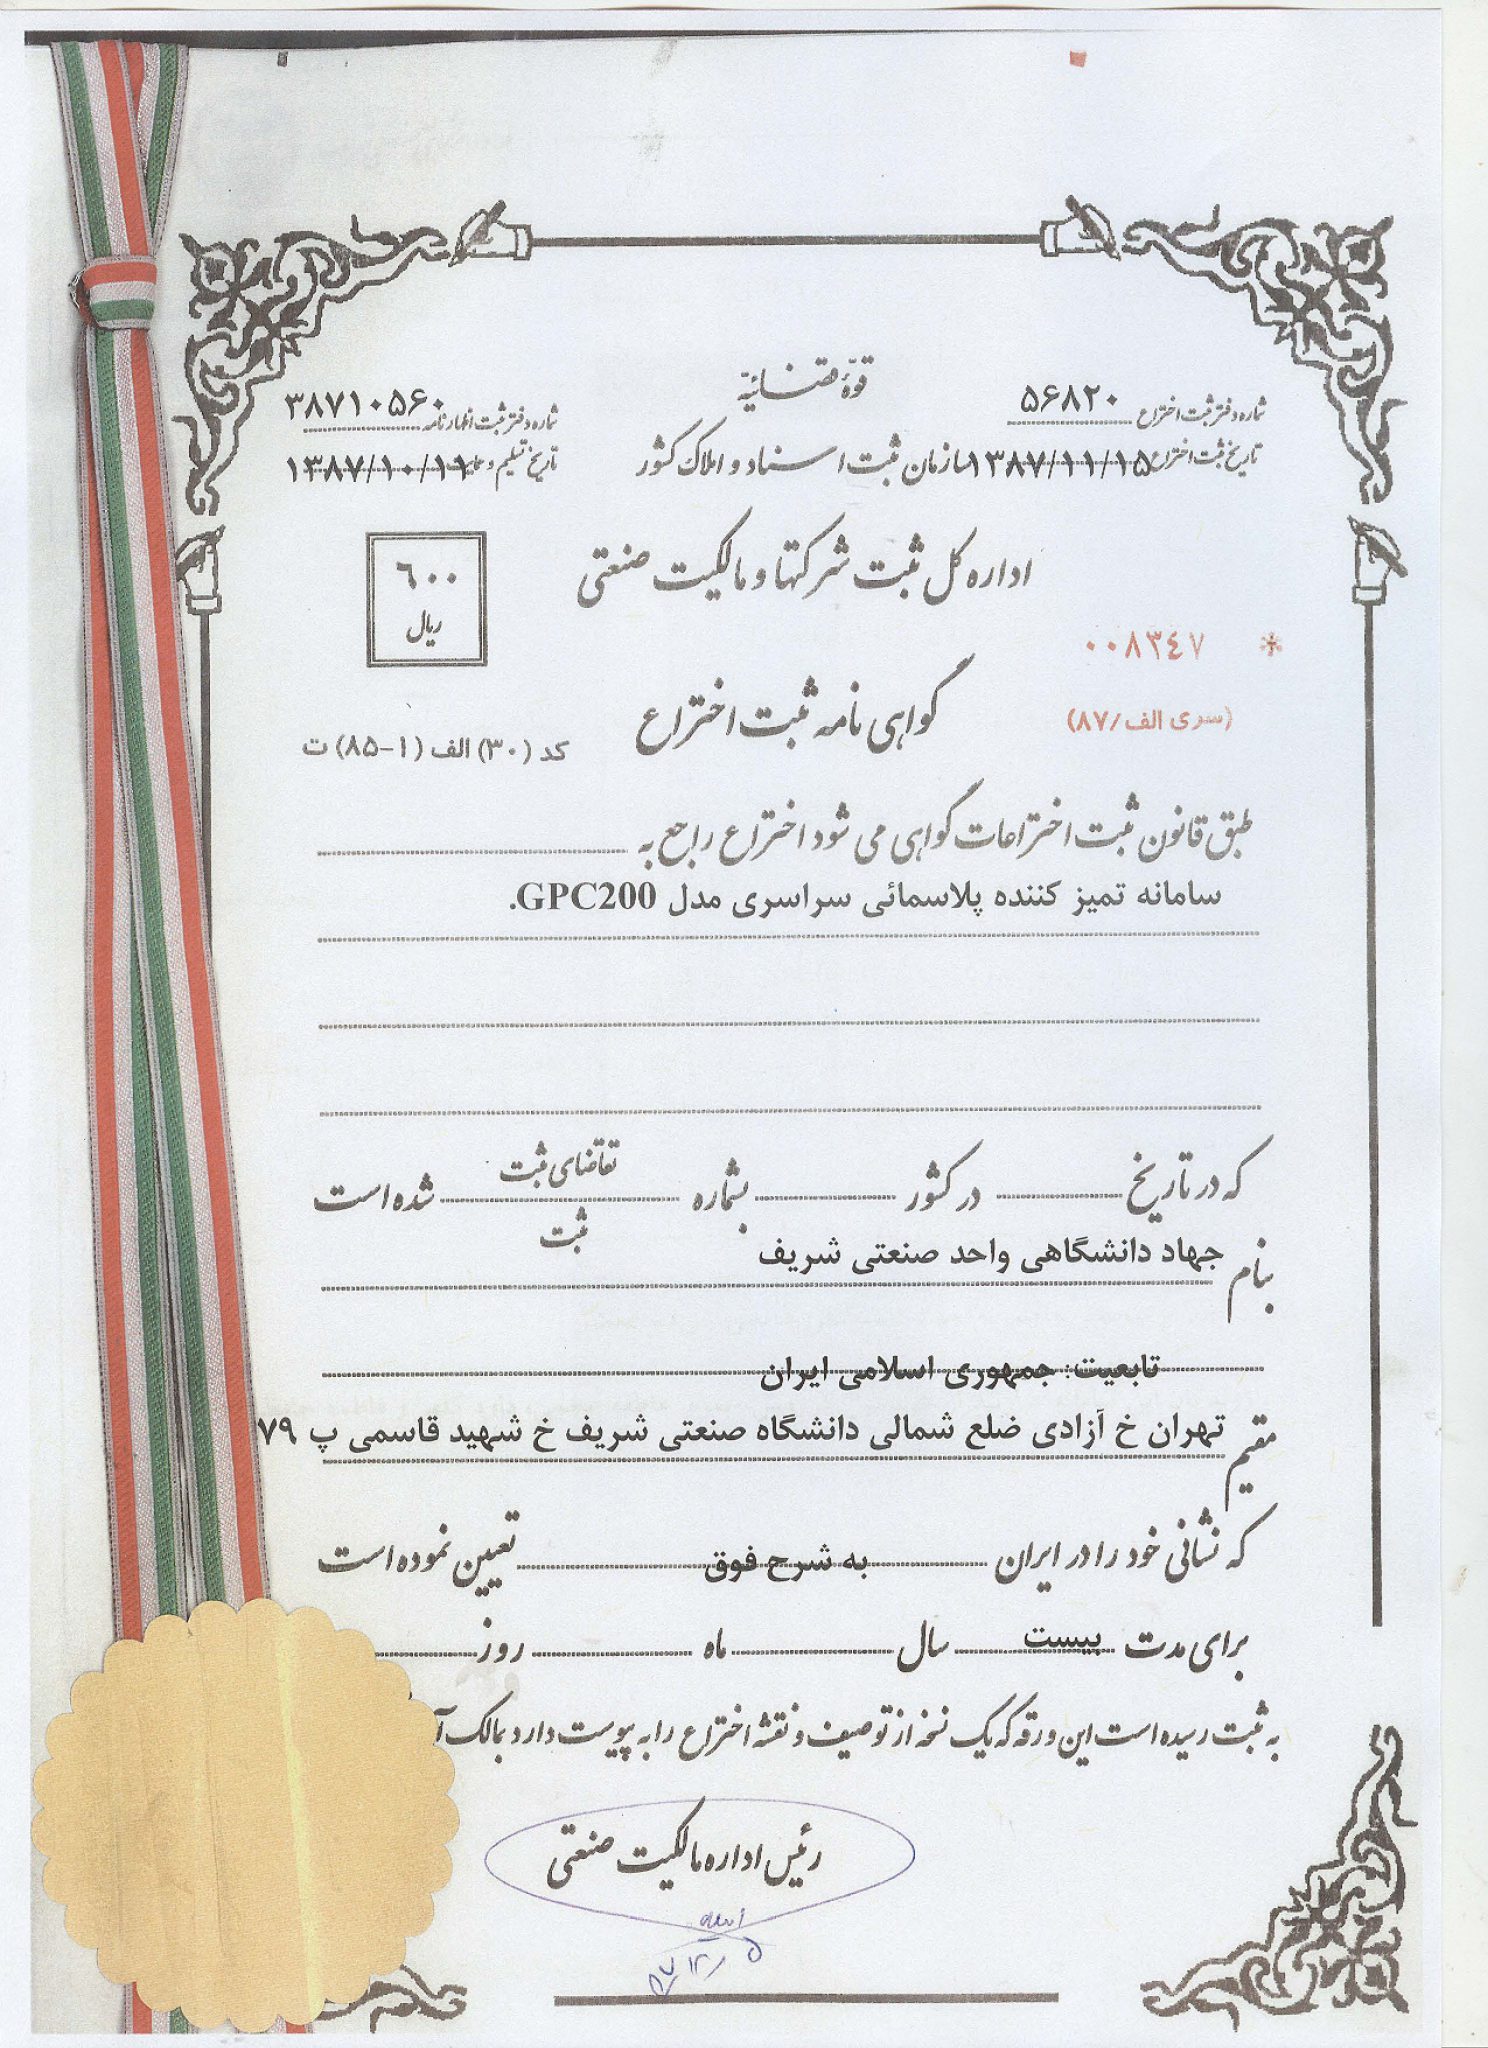 قوّهٔ قضائیّه
شماره دفتر ثبت اختراع ۵۶۸۲۰
شماره دفتر ثبت اظهارنامه ۳۸۷۱۰۵۶۰
سازمان ثبت اسناد و املاک کشور
تاریخ ثبت اختراع ۱۳۸۷/۱۱/۱۵
تاریخ تسلیم و ۱۳۸۷/۱۰/۱۱
اداره کل ثبت شرکتها و مالکیت صنعتی
۶۰۰
ریال
* ۰۰۸۳۴۷
(سری الف/۸۷)
گواهی نامه ثبت اختراع
کد (۳۰) الف (۱-۸۵) ت
طبق قانون ثبت اختراعات گواهی می شود اختراع راجع به
سامانه تمیز کننده پلاسمائی سراسری مدل GPC200.
که در تاریخ در کشور بشماره تقاضای ثبت شده است
ثبت
بنام جهاد دانشگاهی واحد صنعتی شریف
تابعیت: جمهوری اسلامی ایران
مقیم تهران خ آزادی ضلع شمالی دانشگاه صنعتی شریف خ شهید قاسمی پ ۷۹
که نشانی خود را در ایران به شرح فوق تعیین نموده است
برای مدت بیست سال ماه روز
به ثبت رسیده است این ورقه که یک نسخه از توصیف و نقشه اختراع را به پیوست دارد بمالک آ
رئیس اداره مالکیت صنعتی